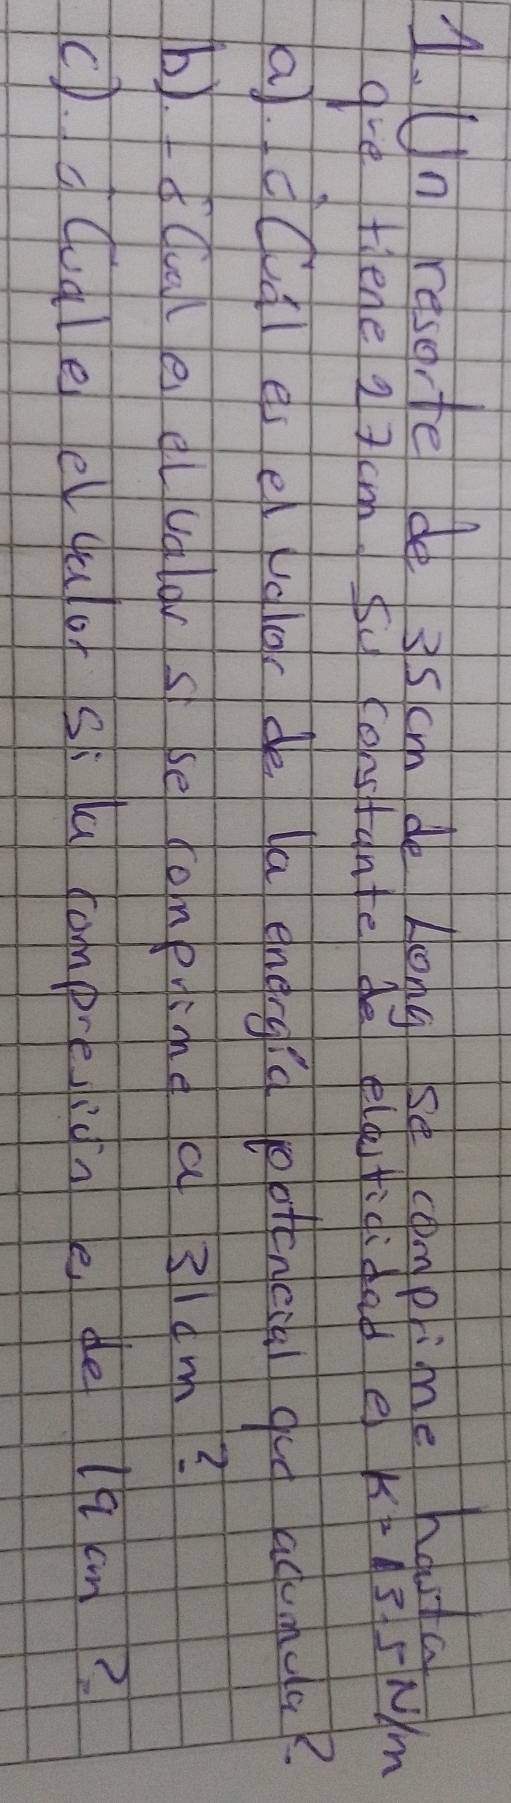 1. Un resorte de 35cm de Long se comprime hasta
que tiene 27cm. Su constante de elasticidad es K=13.5 N/m
a).-¿Cuál es el valor de la energía potencial que acumula?
b).-¿Cual es el valor si se comprime a 31cm?
c).-¿Cual es el valor si la compresión es de 19cm?